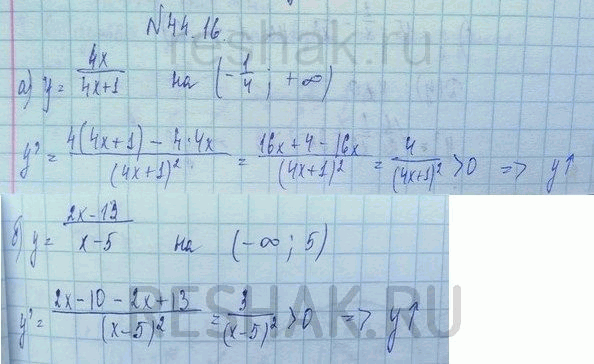 N44.16
reshak.ru
а) y = 4x/(4x+1) на (-1/4; +∞)
y' = (4(4x+1) - 4·4x)/(4x+1)² = (16x+4-16x)/(4x+1)² = 4/(4x+1)² > 0 => y↑
б) y = (2x-13)/(x-5) на (-∞; 5)
y' = (2x-10-2x+13)/(x-5)² = 3/(x-5)² > 0 => y↑
RESHAK.RU